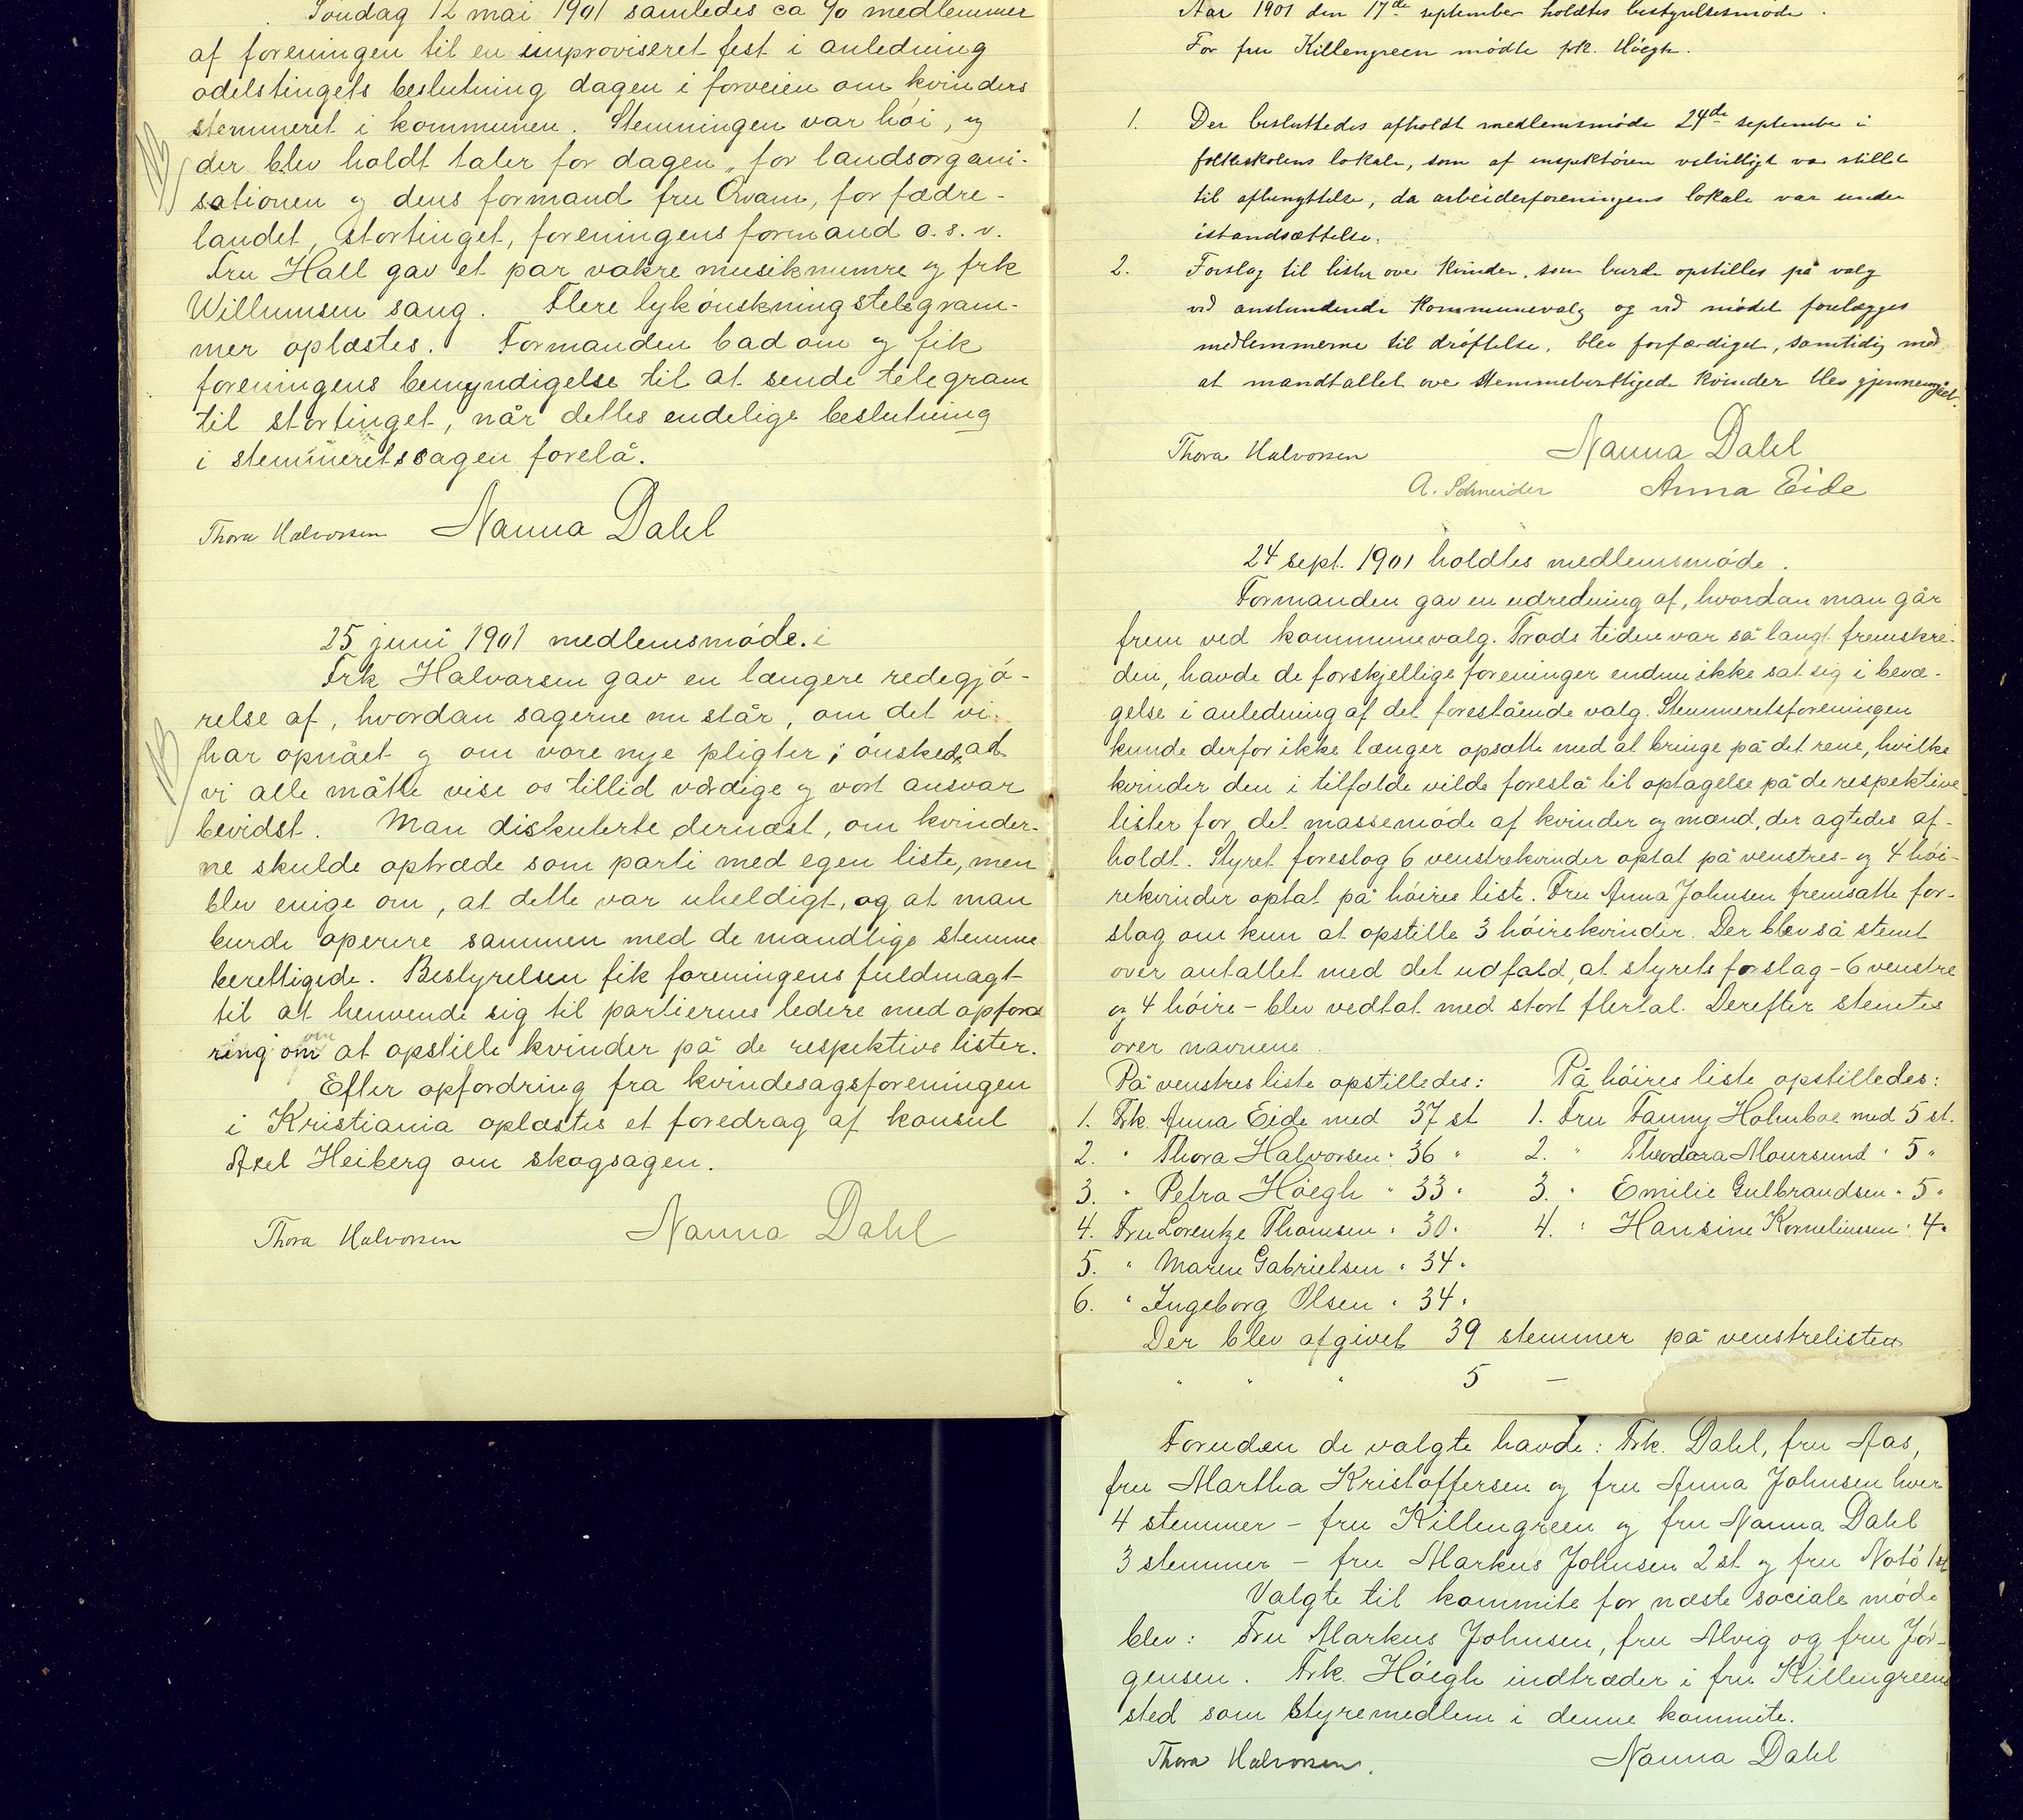 Søndag 12 mai 1901 samledes ca 90 medlemmer
af foreningen til en improviseret fest i anledning
odelstingets beslutning dagen i forveien om kvinders
stemmeret i kommunen. Stemningen var høi, og
der blev holdt taler for dagen, for landsorgani-
sationen og dens formand fru Qvam, for fædre-
landet, stortinget, foreningens formand o. s. v.
Fru Hall gav et par vakre musiknumre og frk
Willumsen sang. Flere lykønskningstelegram-
mer oplæstes. Formanden bad om og fik
foreningens bemyndigelse til at sende telegram
til stortinget, når dettes endelige beslutning
i stemmeretssagen forelå.
Thora Halvorsen Nanna Dahl
25 juni 1901 medlemsmøde. i
Frk Halvorsen gav en længere redegjø-
relse af, hvordan sagerne nu står, om det vi
har opnået og om vore nye pligter; ønsked, at
vi alle måtte vise os tillid værdige og vort ansvar
bevidst. Man diskuterte dernæst, om kvinder-
ne skulde optræde som parti med egen liste, men
blev enige om, at dette var uheldigt, og at man
burde operere sammen med de mandlige stemme
berettigede. Bestyrelsen fik foreningens fuldmagt
til at henvende sig til partiernes ledere med opford
ring om at opstille kvinder på de respektive lister.
Efter opfordring fra kvindesagsforeningen
i Kristiania oplæstes et foredrag af konsul
Axel Heiberg om skogsagen.
Thora Halvorsen Nanna Dahl
Aar 1901 den 17de september holdtes bestyrelsesmøde.
For fru Killengreen mødte frk. Høegh.
1. Der besluttedes afholdt medlemsmøde 24de september i
folkeskolens lokale, som af inspektøren velvilligt var stillet
til afbenyttelse, da arbeiderforeningens lokale var under
istandsættelse.
2. Forslag til lister over kvinder, som burde opstilles på valg
ved anstundende kommunevalg og ved mødet forelægges
medlemmerne til drøftelse, blev forfærdiget, samtidig med
at mandtallet over stemmeberttigede kvinder blev gjennemgået.
Thora Halvorsen Nanna Dahl
A. Schneider Anna Eide
24 sept. 1901 holdtes medlemsmøde.
Formanden gav en udredning af, hvordan man går
frem ved kommunevalg. Trods tiden var så langt fremskre-
den, havde de forskjellige foreninger endnu ikke sat sig i bevæ-
gelse i anledning af det forestående valg. Stemmeretsforeningen
kunde derfor ikke længer opsætte med at bringe på det rene, hvilke
kvinder den i tilfælde vilde foreslå til optagelse på de respektive
lister for det massemøde af kvinder og mænd, der agtedes af-
holdt. Styret foreslog 6 venstrekvinder optat på venstres- og 4 høi-
rekvinder optat på høires liste. Fru Anna Johnsen fremsatte for-
slag om kun at opstille 3 høirekvinder. Der blev så stemt
over antallet med det udfald, at styrets forslag - 6 venstre
og 4 høire - blev vedtat med stort flertal. Derefter stemtes
over navnene.
På venstres liste opstilledes: På høires liste opstilledes:
1. Frk. Anna Eide med 37 st 1. Fru Fanny Holmboe med 5 st.
2. " Thora Halvorsen " 36 " 2. " Theodora Moursund " 5 "
3. " Petra Høegh " 33 " 3. " Emilie Gulbrandsen " 5 "
4. Fru Lorentze Thomsen " 30 " 4. " Hansine Korneliussen " 4 "
5. " Maren Gabrielsen " 34 "
6. " Ingeborg Olsen " 34 "
Der blev afgivet 39 stemmer på venstrelisten
" " " 5 —
Foruden de valgte havde: Frk. Dahl, fru Aas,
fru Martha Kristoffersen og fru Anna Johnsen hver
4 stemmer - fru Killengreen og fru Nanna Dahl
3 stemmer - fru Markus Johnsen 2 st og fru Notø 1 st
Valgte til kommite for næste sociale møde
blev: Fru Markus Johnsen, fru Alvig og fru Jør-
gensen. Frk. Høegh indtræder i fru Killengreens
sted som styremedlem i denne kommite.
Thora Halvorsen. Nanna Dahl